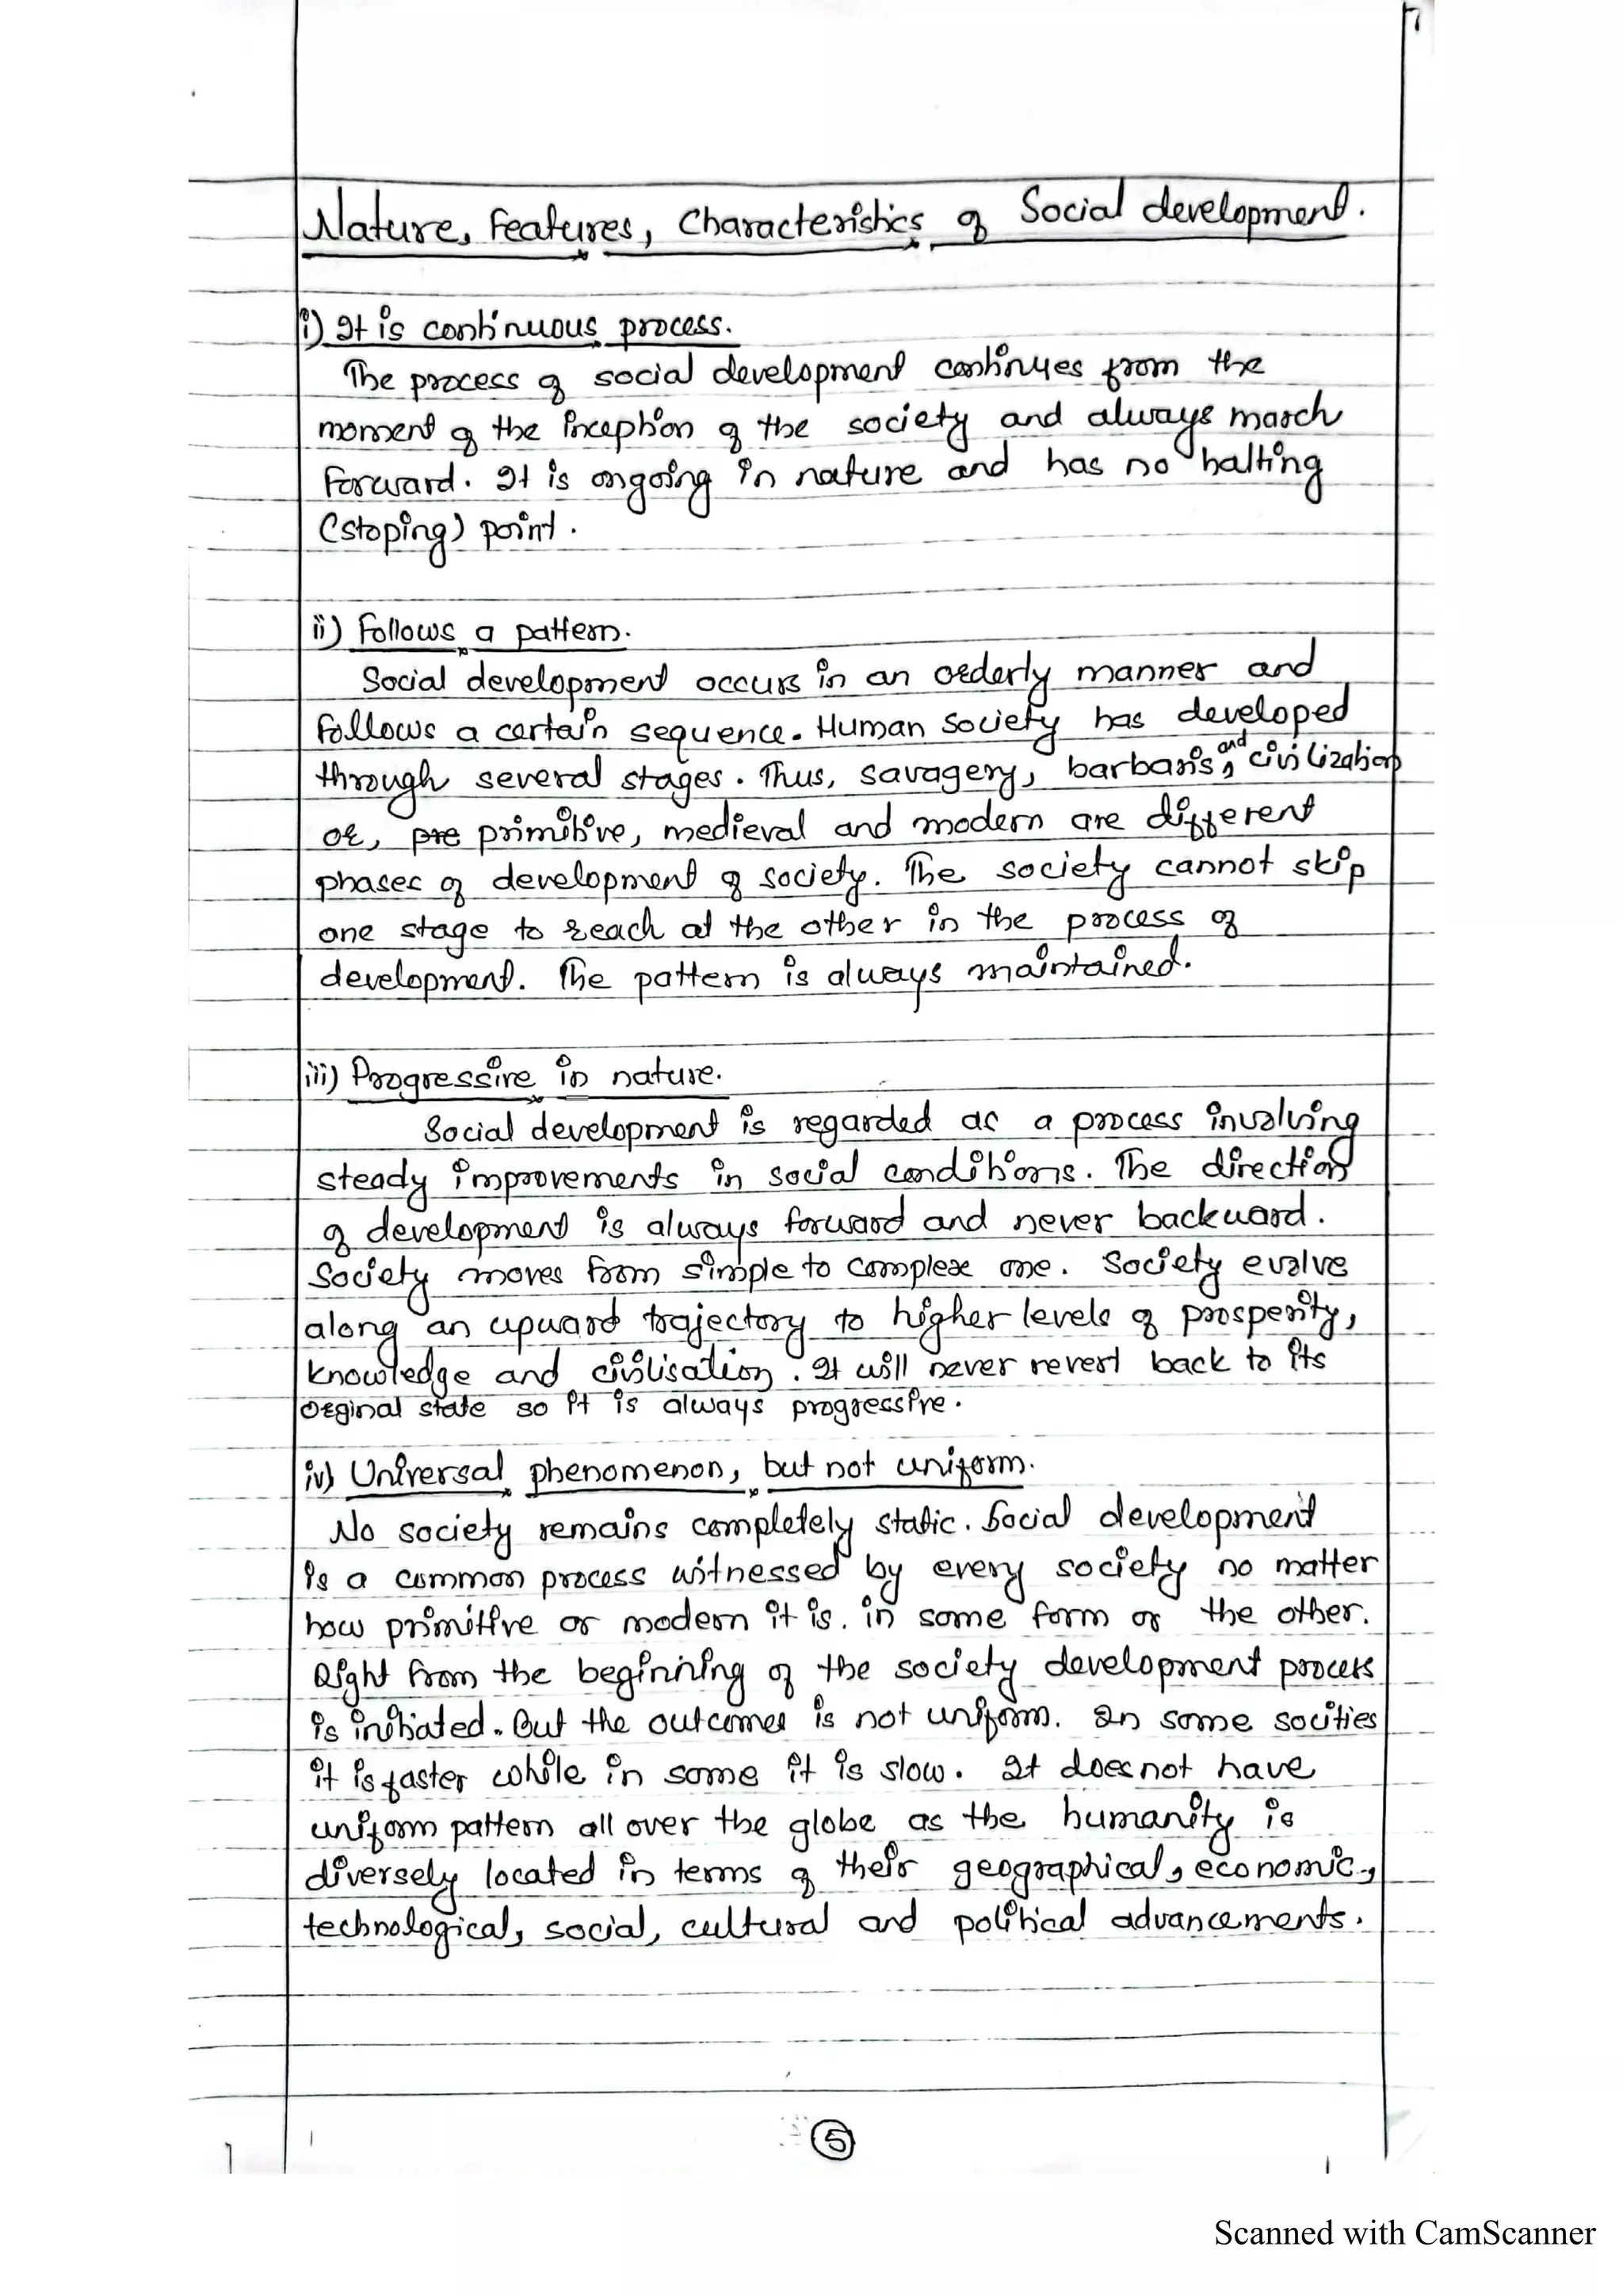 Nature, Features, Characteristics of Social development.
i) It is continuous process.
The process of social development continues from the
moment of the inception of the society and always march
forward. It is ongoing in nature and has no halting
(stoping) point.
ii) Follows a pattern.
Social development occurs in an orderly manner and
follows a certain sequence. Human society has developed
through several stages. Thus, savagery, barbaris, and civilization
or, pre primitive, medieval and modern are different
phases of development of society. The society cannot skip
one stage to reach at the other in the process of
development. The pattern is always maintained.
iii) Progressive in nature.
Social development is regarded as a process involving
steady improvements in social conditions. The direction
of development is always forward and never backward.
Society moves from simple to complex one. Society evolve
along an upward trajectory to higher levels of prosperity,
knowledge and civilisation. It will never revert back to its
orginal state so it is always progressive.
iv) Universal phenomenon, but not uniform.
No society remains completely static. Social development
is a common process witnessed by every society no matter
how primitive or modern it is. in some form or the other.
Right from the beginning of the society development process
is initiated. But the outcomes is not uniform. In some socities
it is faster while in some it is slow. It does not have
uniform pattern all over the globe as the humanity is
diversely located in terms of their geographical, economic,
technological, social, cultural and political advancements.
5
Scanned with CamScanner